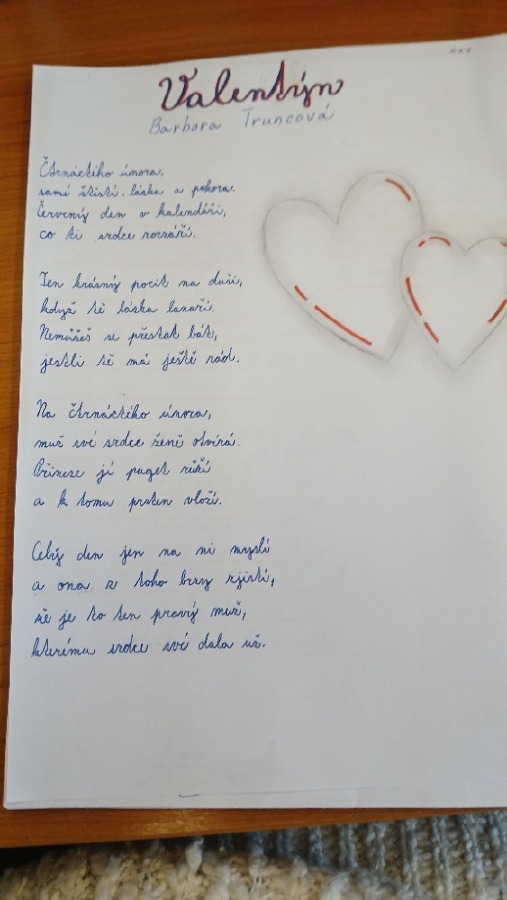 Valentýn
Barbora Truncová
Čtrnáctého února,
samé štěstí, láska a pokora.
Červený den v kalendáři,
co ti srdce rozzáří.
Ten krásný pocit na duši,
když tě láska
Nemůžeš se přestat bát,
jestli tě má ještě rád.
Na čtrnáctého února,
muž své srdce ženě otvírá.
Přinese jí puget růží
a k tomu prsten vloží.
Celý den jen na ni myslí
a ona z toho brzy zjistí,
že je to ten pravý muž,
kterému srdce své dala už.